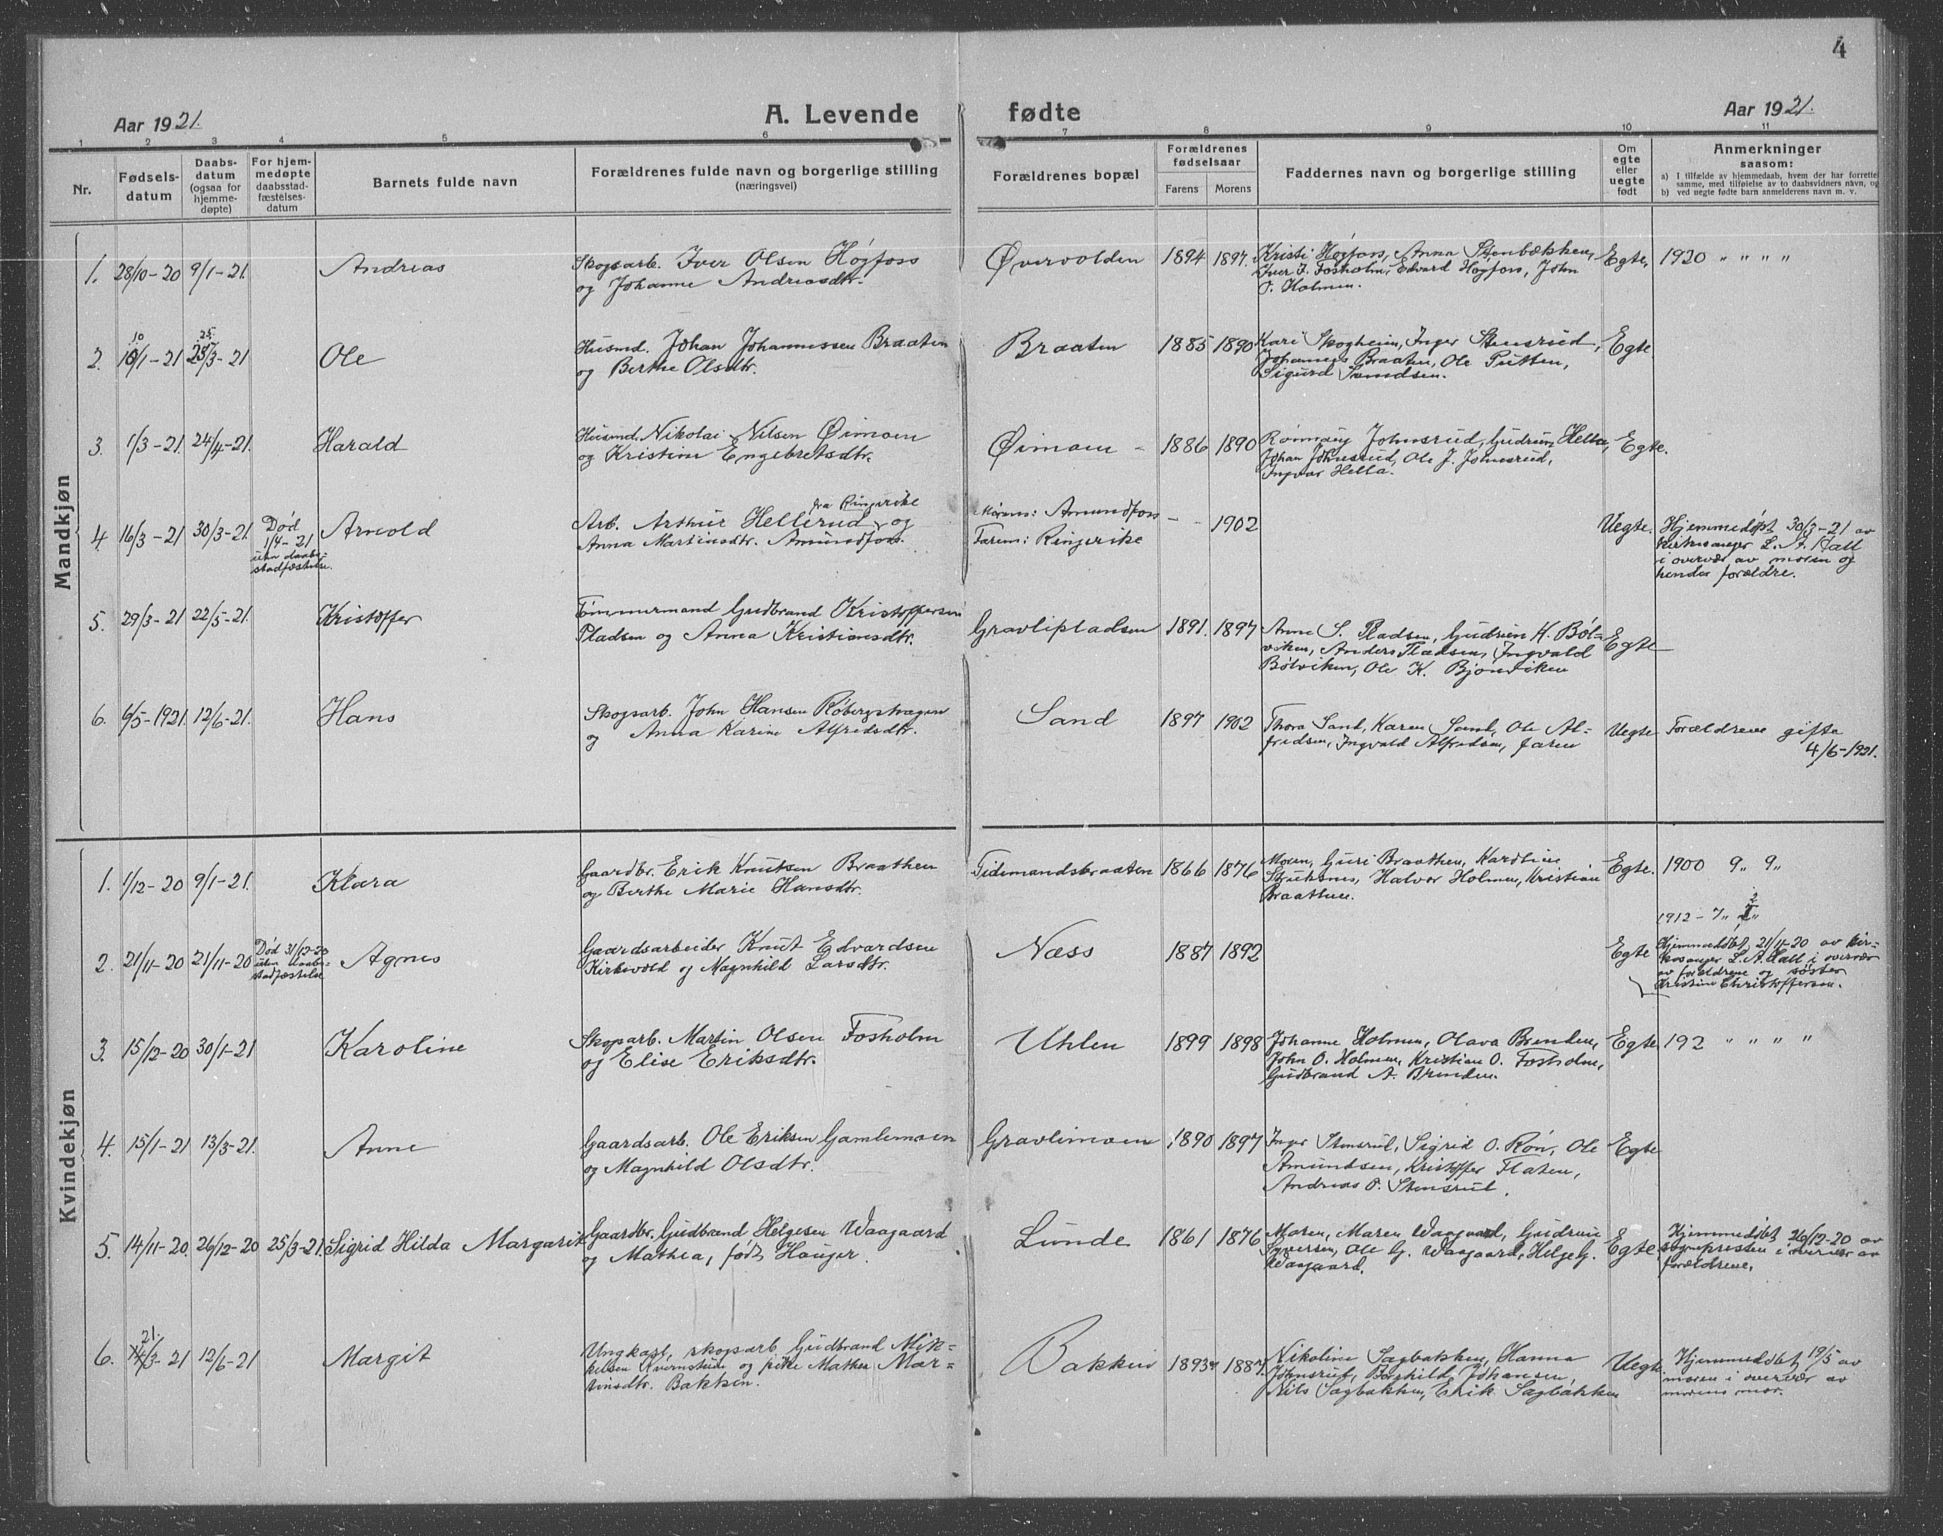 4
Aar 1921.
A. Levende fødte
Aar 1921.
1 2 3 4 5 6 7 8 9 10 11
Nr.
Fødsels-
datum
Daabs-
datum
(ogsaa for
hjemme-
døpte)
For hjem-
medøpte
daabsstad-
fæstelses-
datum
Barnets fulde navn
Forældrenes fulde navn og borgerlige stilling
(næringsvei)
Forældrenes bopæl
Forældrenes
fødselsaar
Farens Morens
Faddernes navn og borgerlige stilling
Om
egte
eller
uegte
født
Anmerkninger
saasom:
a) I tilfælde av hjemmedaab, hvem der har forrettet
samme, med tilføielse av to daabsvidners navn, og
b) ved uegte fødte barn anmelderens navn m. v.
Mandkjøn
1. 28/10-20 9/1-21. Andreas
Skogsarb. Iver Olsen Høgfoss
og Johanne Andreasdtr.
Øvervolden 1894 1897.
Kristi Høgfoss, Anna Stenbækken,
Iver I. Fosholm, Edvard Høgfoss, John
O. Holmen.
Egte. 1920 " " " "
2. 10/1-21 10 25/3-21 25 Ole
Husmd. Johan Johannessen Braaten
og Berthe Olsdtr.
Braaten 1885 1890
Kari Skogheim, Inger Stensrud,
Johannes Braaten, Ole Putten,
Sigurd
Egte.
3. 1/3-21. 24/4-21. Harald
Husmd. Nikolai Nilsen Øimoen
og Kristine Engebretsdtr.
Øimoen - 1886 1890
Rønnaug Johnsrud, Gudrun Hella,
Johan Johnsrud, Ole J. Johnsrud,
Ingvar Hella.
Egte.
4. 16/3-21 30/3-21.
Død
1/4-21
uten daabs-
stadfæstelse.
Arnold
fra Ringerike
Arb. Arthur Hellerud og
Anna Martinsdtr. Amundfoss.
Morens: Amundfoss
Farens: Ringerike
- - 1902
Uegte.
Hjemmedøpt 30/3-21 av
kirkesanger L. A. Hall
i overvær av moren og
hendes forældre.
5. 29/3-21 22/5-21. Kristoffer
Tømmermand Gudbrand Kristoffersen
Pladsen og Anna Kristiansdtr.
Gravlipladsen 1891. 1897
Anne S. Pladsen, Gudrun K. Bøl-
viken, Anders Pladsen, Ingvald
Bølviken, Ole K. Bjønviken
Egte
6. 6/5-1921. 12/6-21. Hans
Skogsarb. John Hansen Røbergshagen
og Anna Karine Alfredsdtr.
Sand 1897 1902
Thora Sand, Karen Sand, Ole Al-
fredsen, Ingvald Alfredsen, faren
Uegte
Forældrene gifte
4/6-1921.
Kvindekjøn
1. 1/12-20 9/1-21. Klara
Gaardbr. Erik Knutsen Braathen
og Berthe Marie Hansdtr.
Tidemandsbraaten 1866 1876
Moren, Guri Braathen, Karoline
Struksnes, Halvor Holmen, Kristian
Braathen.
Egte. 1900 9" 9"
2. 21/11-20 21/11-20
Død 31/12-20
uten daabs-
stadfæstelse
Agnes
Gaardsarbeider Knut Edvardsen
Kirkevold og Magnhild Larsdtr.
Næss 1887 1892
Egte
1912-7" 2"
Hjemmedøbt 21/11-20 av kir-
kesanger L. A. Hall i overvær
av forældrene og søster
Kristine Christoffersen.
3. 15/12-20 30/1-21 Karoline
Skogsarb. Martin Olsen Fosholm
og Elise Eriksdtr.
Uhlen 1899 1898
Johanne Holmen, Olava Brenden,
John O. Holmen, Kristian O. Fosholm,
Gudbrand A. Brenden.
Egte 192 " " " "
4. 15/1-21 13/3-21. Anne
Gaardsarb. Ole Eriksen Gamlemoen
og Magnhild Olsdtr.
Gravlimoen 1890 1897
Inger Stensrud, Sigrid O. Røn, Ole
Amundsen, Kristoffer Flaten,
Andreas O. Stensrud.
Egte
5. 14/11-20. 26/12-20 25/3-21. Sigrid Hilda Margarit
Gaardbr. Gudbrand Helgesen Waagaard
og Mathea, født Hauger.
Lunde 1861 1876
Moren, Maren Waagaard, Gudrun
Syversen, Ole G. Waagaard, Helge G.
Waagaard.
Egte.
Hjemmedøbt 26/12-20 av
sogneprest i overvær av
forældrene.
6. 21. 14/3-21 12/6-21 Margit
Ungkarl, skogsarb Gudbrand Mik-
kelsen og pike Mathea Mar-
tinsdtr. Bakken.
Bakken 1893 1887.
Nikoline Sagbakken, Hanna
Johnsrud, Borghild Johansen,
Nils Sagbakken, Erik Sagbakken
Uegte
Hjemmedøbt 19/5 av
moren i overvær av
morens mor.